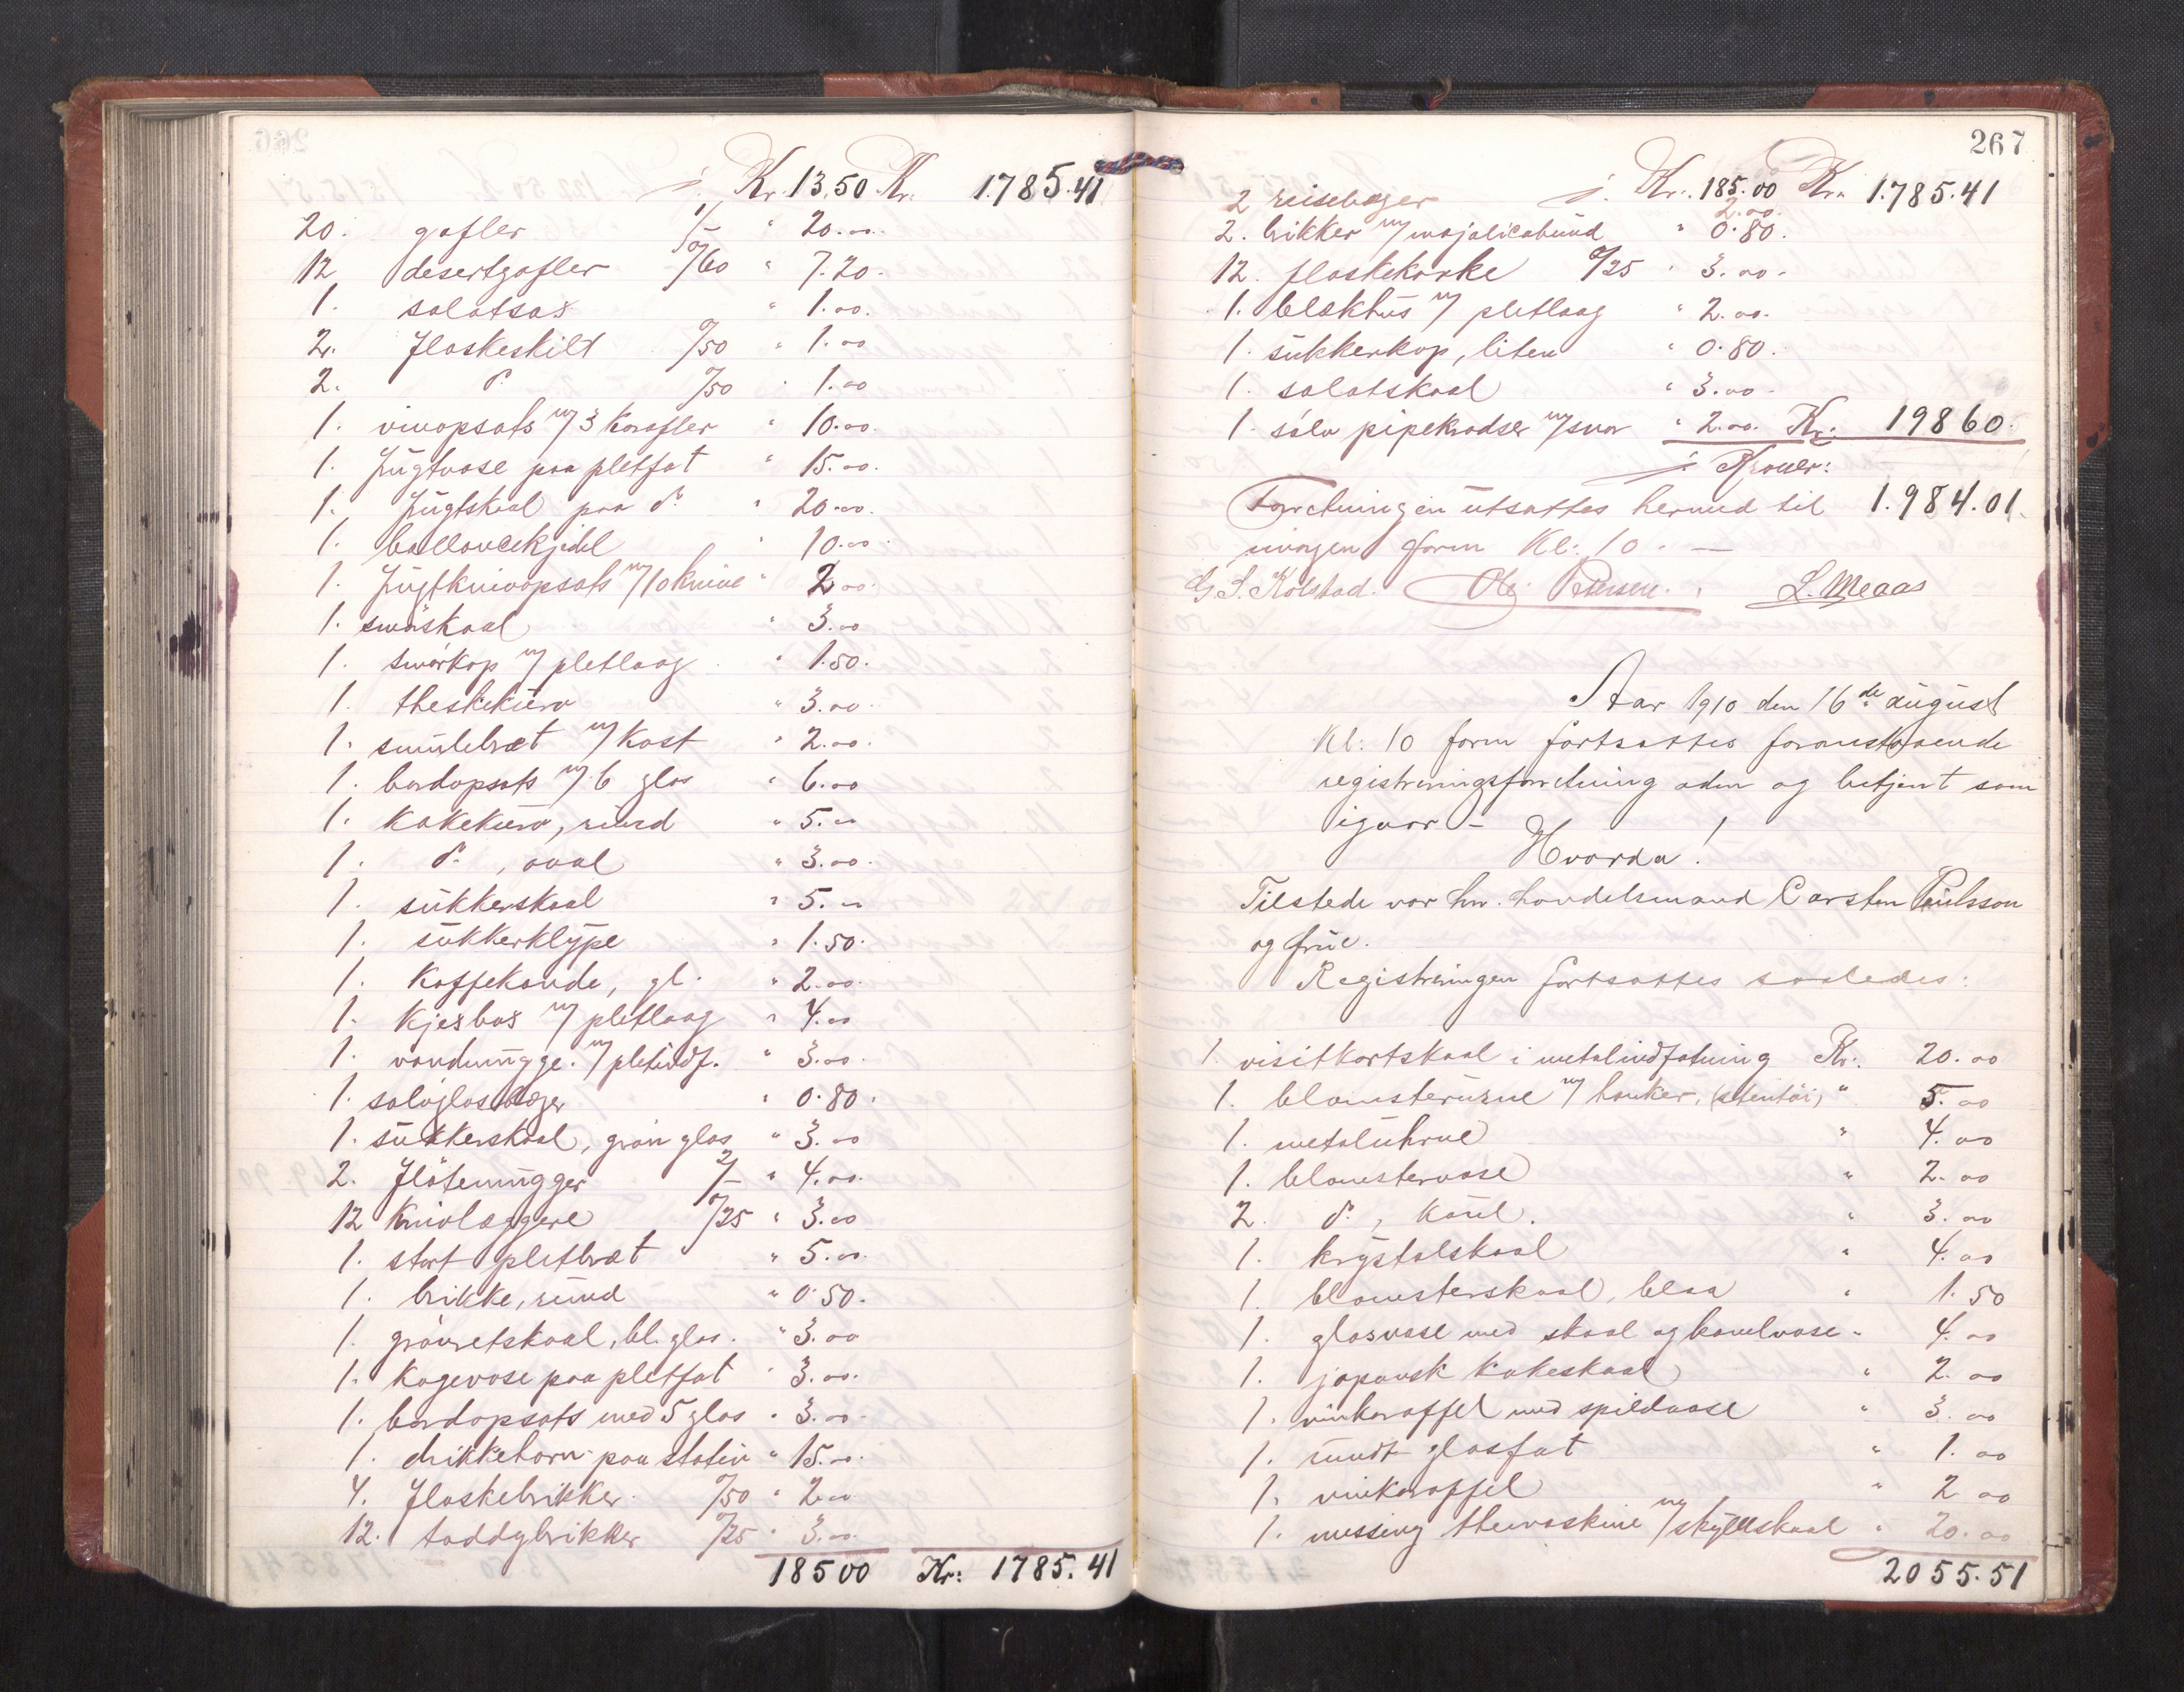 ÷ Kr. 13,50 Kr. 1785.41
20. gafler 1/- " 20.00.
12 desertgafler 0/60 " 7.20.
1. salatsax " 1.00.
2. flaskeskilt 0/50 " 1.00
2. do 0/50 " 1.00
1. vinopsats m/ 3 karafler " 10.00.
1. frugtvase paa pletfat " 15.00.
1. frugtskaal paa do " 20.00.
1. ballancekjedel " 10.00.
1. frugtknivopsats m/10 knive " 2.00.
1. smørskaal " 3.00
1. smørkop m/ pletlaag " 1.50.
1. theskekurv " 3.00.
1. smulebræt m/ kost " 2.00.
1. bordopsats m/ 6 glas " 6.00
1. kakekurv, rund " 5.00
1. do, oval " 3.00.
1. sukkerskaal " 5.00
1. sukkerklype " 1.50.
1. kaffekande, gl. " 2.00.
1. kjexbox m/ pletlaag " 4.00
1. vandmugge m/ pletindf. " 3.00.
1. sølvglasbæger " 0.80.
1. sukkerskaal, grøn glas " 3.00
2. fløtemugger 2/- " 4.00.
12 knivlæggere 0/25 " 3.00
1. stort pletbræt " 5.00.
1. brikke, rund " 0.50.
1. grønretskaal, bl. glas. " 3.00
1. kagevase paa pletfat " 3.00.
1. bordopsats med 5 glas " 3.00.
1. drikkehorn paa stativ " 15.00.
4. flaskebrikker 0/50 " 2.00
12. toddybrikker 0/25 " 3.00.
185 00 Kr: 1785.41
267
÷ Kr. 185.00 Kr. 1.785.41
2 reisebæger 2.00.
2. brikker m/ majolicabund " 0.80.
12. flaskekorke 0/25 " 3.00.
1. blækhus m/ pletlaag " 2.00.
1. sukkerkop, liten " 0.80.
1. salatskaal " 3.00.
1. sølv pipekradser m/ snor " 2.00. Kr: 198 60.
÷ Kroner:
Forretningen utsattes hermed til 1.984.01.
imorgen form Kl: 10. —
G. S. Kolstad. Ole Petersen. L. Meaas
Aar 1910 den 16de august
Kl: 10 form fortsattes foranstaaende
registreringsforretning adm og betjent som
igaar –
Hvorda!
Tilstede var hr. handelsmand Carsten Paulsson
og frue.
Registreringen fortsattes saaledes:
1. visitkortskaal i metalindfatning Kr: 20.00
1. blomsterurne m/ hanker, (stentøi) " 5.00
1. metaluhrne " 4.00
1. blomstervase " 2.00
2. do, kaul. " 3.00
1. krystalskaal " 4.00
1. blomsterskaal, blaa " 1.50
1. glasvase med skaal og kaulvase " 4.00
1. japansk kakeskaal " 2.00
1. vinkaraffel med spildvase " 3.00
1. rundt glasfat " 1.00
1. vinkaraffel " 2 00
1. messing themaskine m/ skylleskaal " 20.00
2055.51